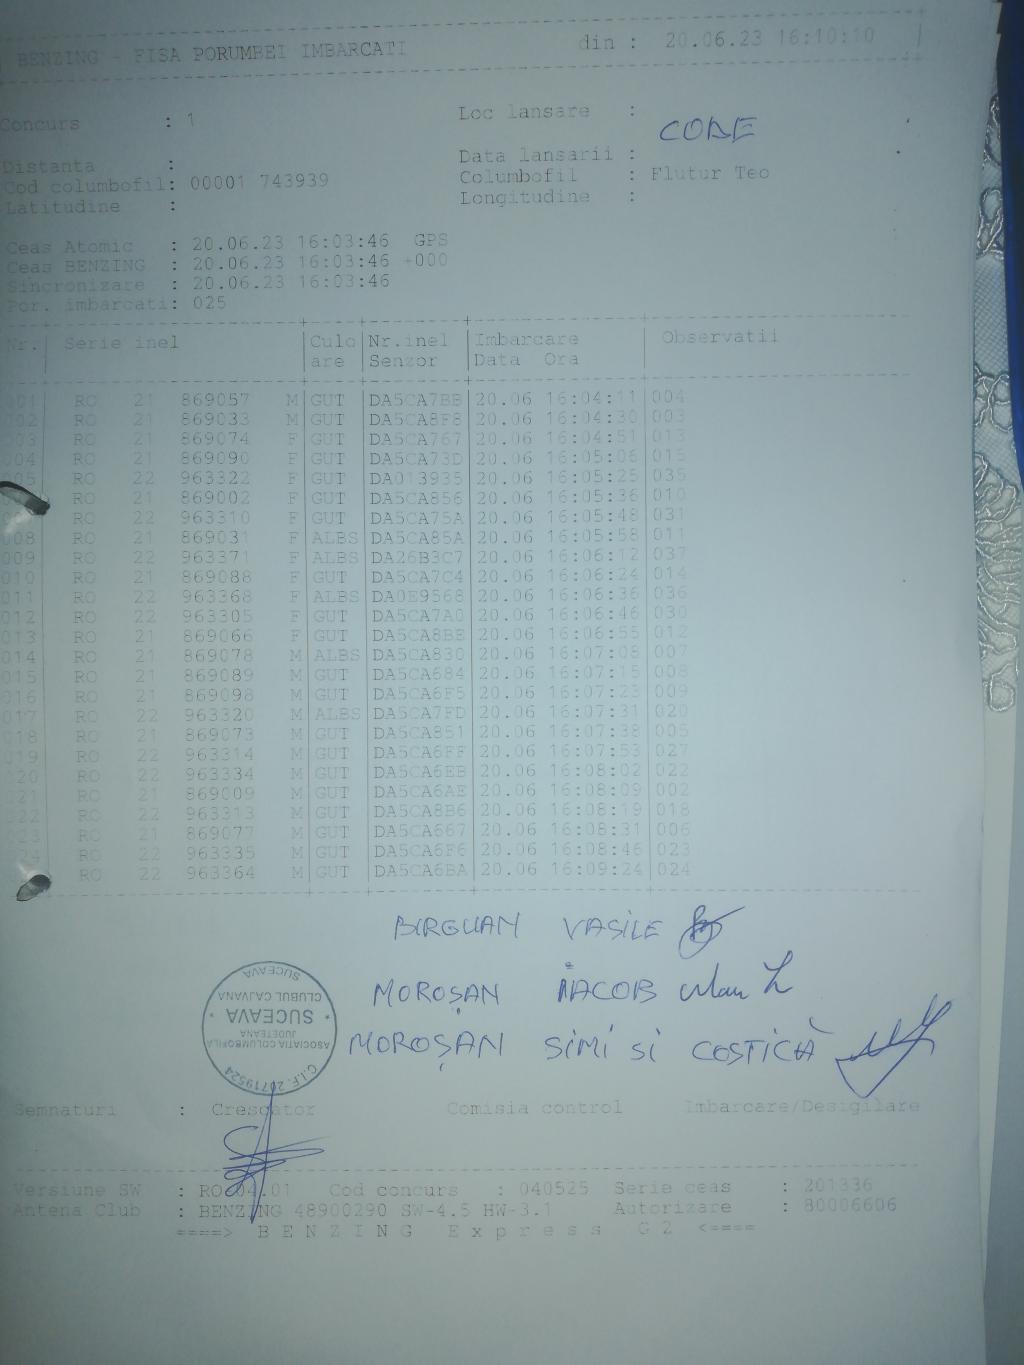 BENZING - FISA PORUMBEI IMBARCATI din : 20.06.23 16:10:10
Concurs : 1 Loc lansare :
CODE
Distanta : Data lansarii :
Cod columbofil: 00001 743939 Columbofil : Flutur Teo
Latitudine : Longitudine :
Ceas Atomic : 20.06.23 16:03:46 GPS
Ceas BENZING : 20.06.23 16:03:46 +000
Sincronizare : 20.06.23 16:03:46
Por. imbarcati: 025
Nr. Serie inel Culo Nr.inel Imbarcare Observatii
are Senzor Data Ora
001 RO 21 869057 M GUT DA5CA7BB 20.06 16:04:11 004
002 RO 21 869033 M GUT DA5CA8F8 20.06 16:04:30 003
003 RO 21 869074 F GUT DA5CA767 20.06 16:04:51 013
004 RO 21 869090 F GUT DA5CA73D 20.06 16:05:06 015
005 RO 22 963322 F GUT DA013935 20.06 16:05:25 035
RO 21 869002 F GUT DA5CA856 20.06 16:05:36 010
RO 22 963310 F GUT DA5CA75A 20.06 16:05:48 031
008 RO 21 869031 F ALBS DA5CA85A 20.06 16:05:58 011
009 RO 22 963371 F ALBS DA26B3C7 20.06 16:06:12 037
010 RO 21 869088 F GUT DA5CA7C4 20.06 16:06:24 014
011 RO 22 963368 F ALBS DA0E9568 20.06 16:06:36 036
012 RO 22 963305 F GUT DA5CA7A0 20.06 16:06:46 030
013 RO 21 869066 F GUT DA5CA8BE 20.06 16:06:55 012
014 RO 21 869078 M ALBS DA5CA830 20.06 16:07:08 007
015 RO 21 869089 M GUT DA5CA684 20.06 16:07:15 008
016 RO 21 869098 M GUT DA5CA6F5 20.06 16:07:23 009
017 RO 22 963320 M ALBS DA5CA7FD 20.06 16:07:31 020
018 RO 21 869073 M GUT DA5CA851 20.06 16:07:38 005
019 RO 22 963314 M GUT DA5CA6FF 20.06 16:07:53 027
020 RO 22 963334 M GUT DA5CA6EB 20.06 16:08:02 022
021 RO 21 869009 M GUT DA5CA6AE 20.06 16:08:09 002
022 RO 22 963313 M GUT DA5CA8B6 20.06 16:08:19 018
023 RO 21 869077 M GUT DA5CA667 20.06 16:08:31 006
024 RO 22 963335 M GUT DA5CA6F6 20.06 16:08:46 023
RO 22 963364 M GUT DA5CA6BA 20.06 16:09:24 024
BIRGUAN VASILE
MOROȘAN IACOB
MOROȘAN SIMI SI COSTICĂ
C.I.F. 20719524
ASOCIATIA COLUMBOFILA
JUDETEANA
* SUCEAVA *
CLUBUL CAJVANA
SUCEAVA
Semnaturi : Crescator Comisia control Imbarcare/Desigilare
Versiune SW : RO 04.01 Cod concurs : 040525 Serie ceas : 201336
Antena Club : BENZING 48900290 SW-4.5 HW-3.1 Autorizare : 80006606
====> B E N Z I N G E x p r e s s G 2 <====